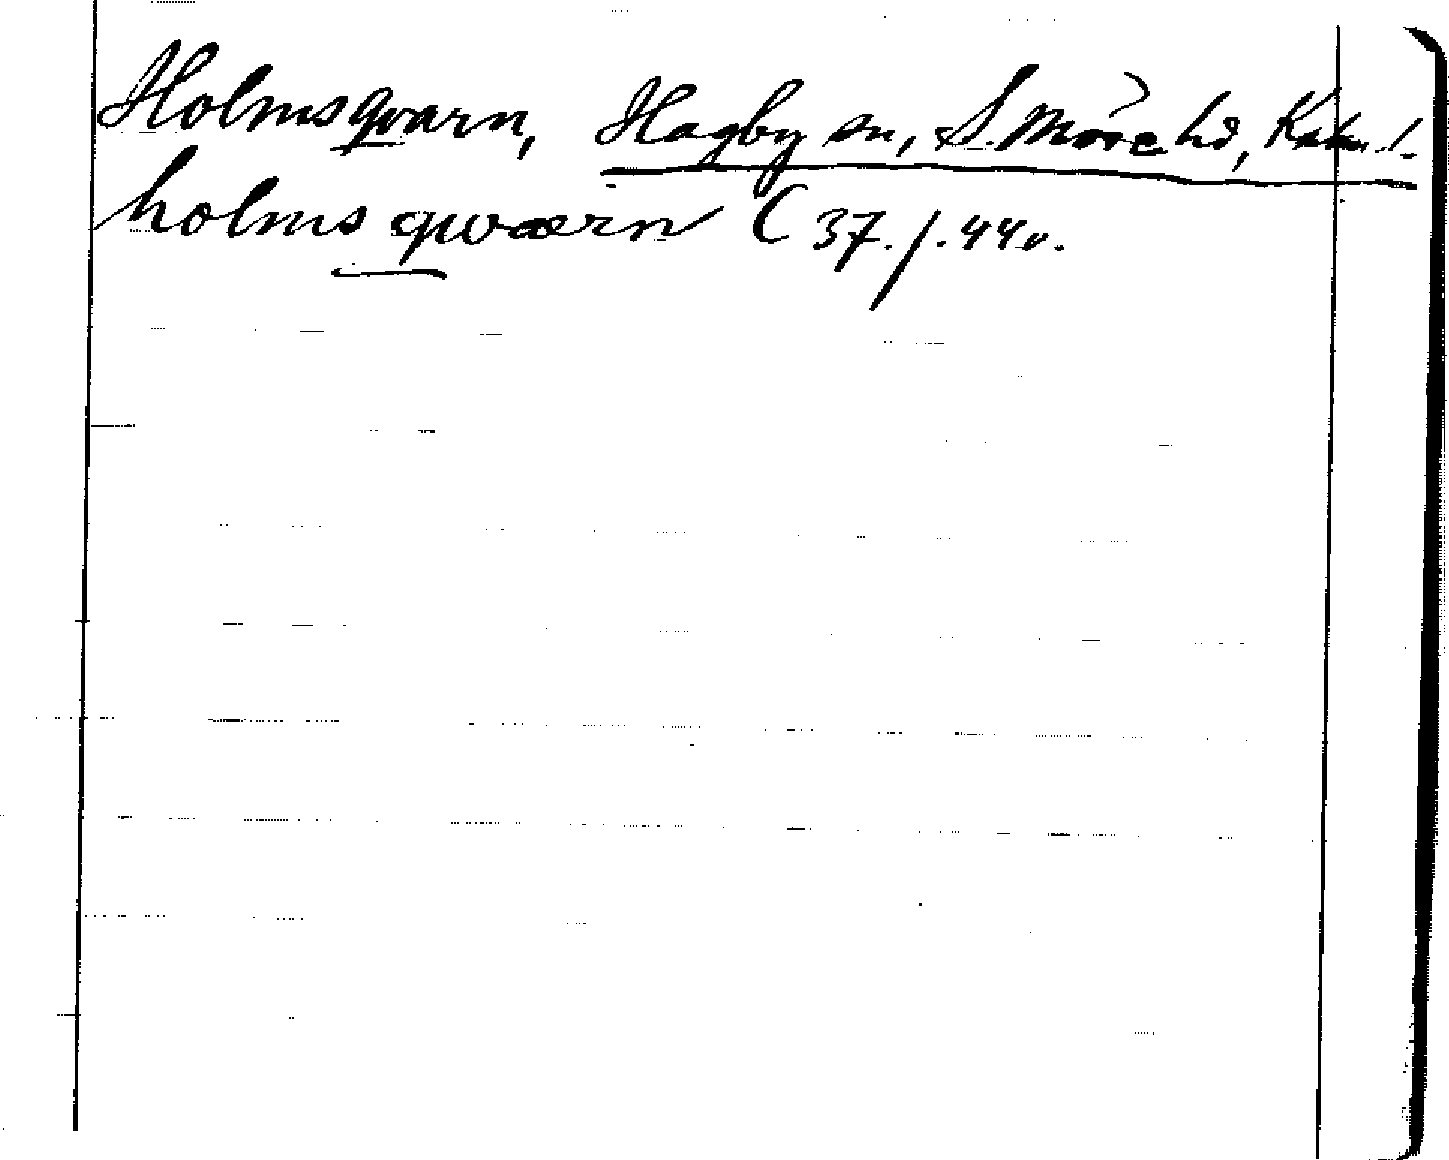 Holmsqvarn, Hagby sn, S. Möre hd, Kalm. l.
holms qwærn C 37./. 44 v.